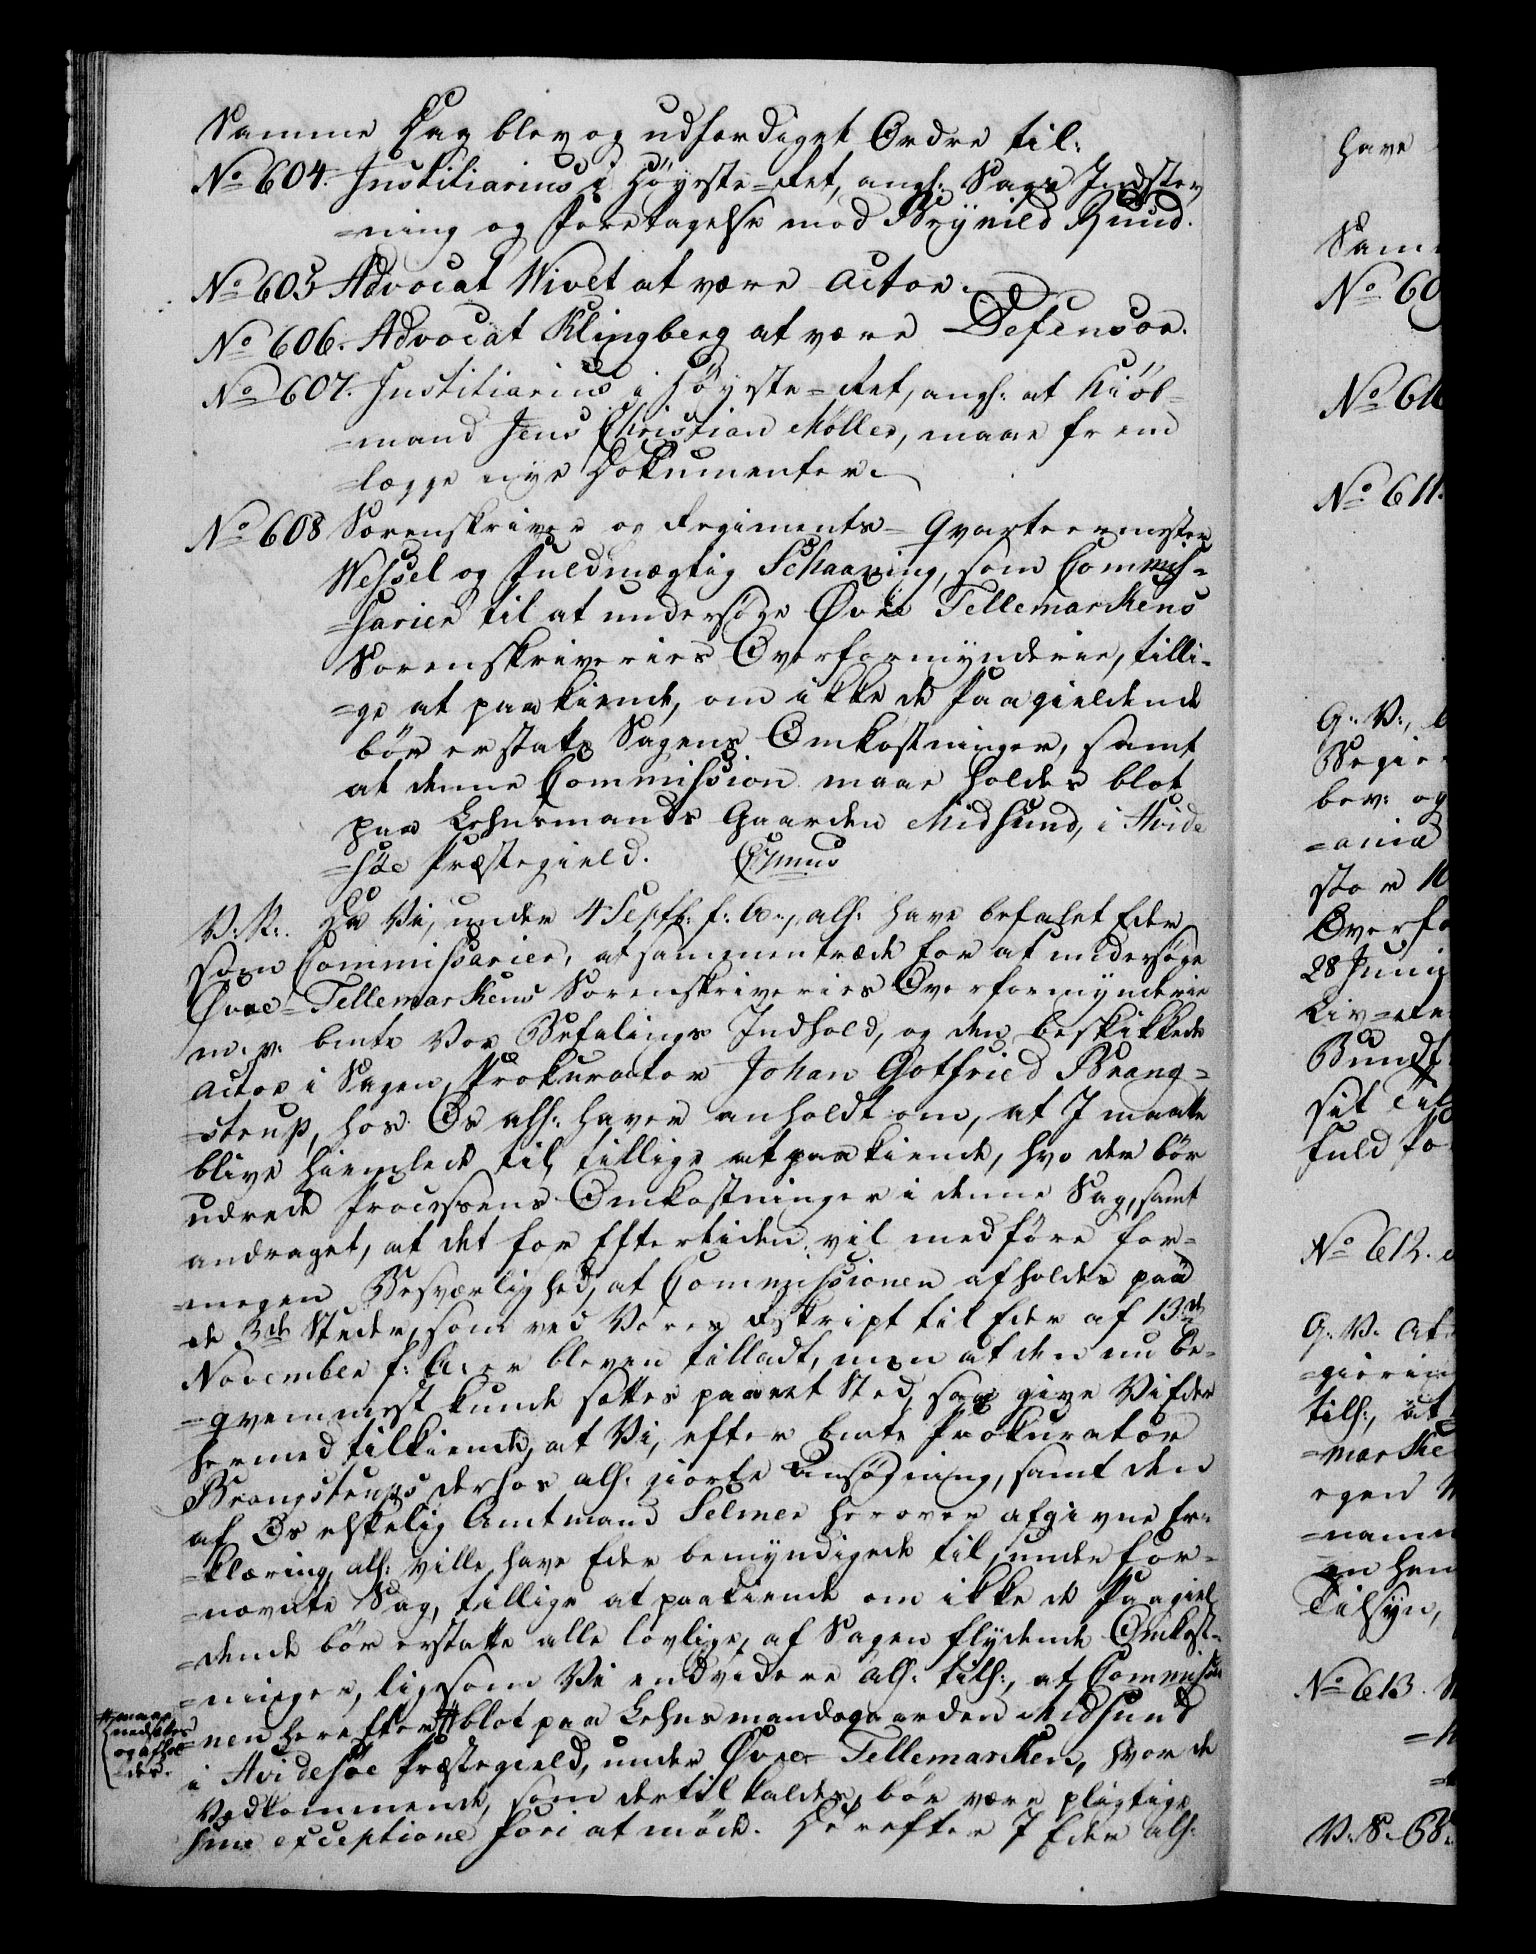 Samme Dag blev og udfærdiget Ordre til:
No 604. Justitiarius i Høyeste-Ret, angl. Sags Indstev
=ning og Foretagelse mod Brynild Ruud.
No 605 Advocat Wivet at være Actor.
No 606. Advocat Klingberg at være Defensor.
No 607. Justitiarius i Høyeste-Ret, angl. at Kiøb-
=mand Jens Christian Møller, maae frem
=lægge nye Dokumenter.
No 608 Sorenskriver og Regiments-Qvarteermester
Wessel og Fuldmægtig Schaaning, som Commis-
=sarier til at undersøge Øvre Tellemarkens
Sorenskriveries Overformynderie, tilli-
=ge at paakiende, om ikke de Paagieldende
bør erstate Sagens Omkostninger, samt
at denne Commission maae holdes blot
paa Lehnsmands Gaarden Midsund, i Hvide
=søe Præstegield.
V: K:. Da Vi, under 4 Septb: f: A:, als. have befalet Eder
som Commissarier, at sammentræde for at undersøge
Øvre-Tellemarkens Sorenskriveries Overformynderie
m. v. bemte Vor Befalings Indhold, og den beskikkede
Actor i Sagen, Prokurator Johan Gotfried Brang-
=strup, hos Os alh: haver anholdt om, at I maatte
blive hiemlede til, tillige at paakiende, hvo der bør
udrede Processens Omkostninger i denne Sag, samt
andraget, at det for Eftertiden vil medføre for-
=megen Besværlighed, at Commissionen afholdes paa
de 3de Steder, som ved Vores Rskript til Eder af 13de
November f: A: er bleven tilladt, men at den nu be-
=qvemmest kunde sættes paa eet Sted, saa give Vi Eder
hermed tilkiende, at Vi, efter bemte Prokurator
Brangstrups derhos alh: giorte Ansøgning, samt den
af Os elskelig Amtmand Selmer herover afgivne Er-
=klæring, alh: ville have Eder bemyndigede til, under for-
=nævnte Sag, tillige at paakiende om ikke de Paagiel
=dende bør erstatte alle lovlige, af Sagen flydende Omkost-
=ninger, ligesom Vi endvidere alh: tilh:, at Commissio
=nen herefter # blot paa Lehnsmandsgaarden Midsund
# maae
nedsættes
og afhol
=des.
i Hvidesøe Præstegield, under Øvre-Tellemarken, hvor de
Vedkommende, som dertil kaldes, bør være pligtige
sine exceptione fori at møde. Derefter I Eder alh:
have
Sam
No 60
No 61
No 611.
G: V:,
Regie
bev: og
=ania
stor 10
Overfo
28 Junii
Liv=
Bundf
sit Til
fuld
No 612.
G. V. At
=giering
tilh:, at
=marke
egen
=namn
en hen
Tilsyn,
No 613.
V. S. B.